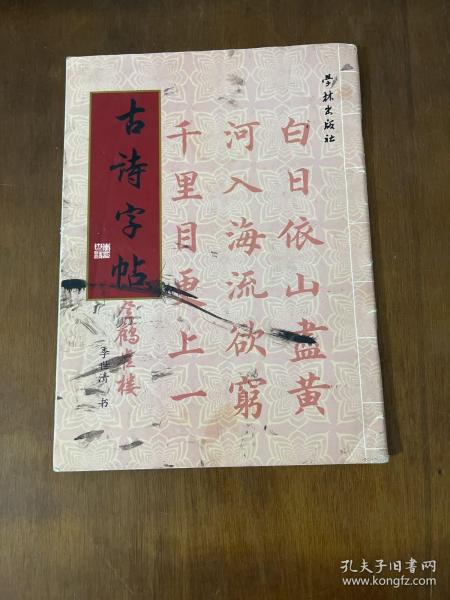 学林出版社
白日依山盡黄
河入海流欲窮
千里目更上一
古诗字帖
登鹳雀楼
李世清 书
孔夫子旧书网
www.kongfz.com